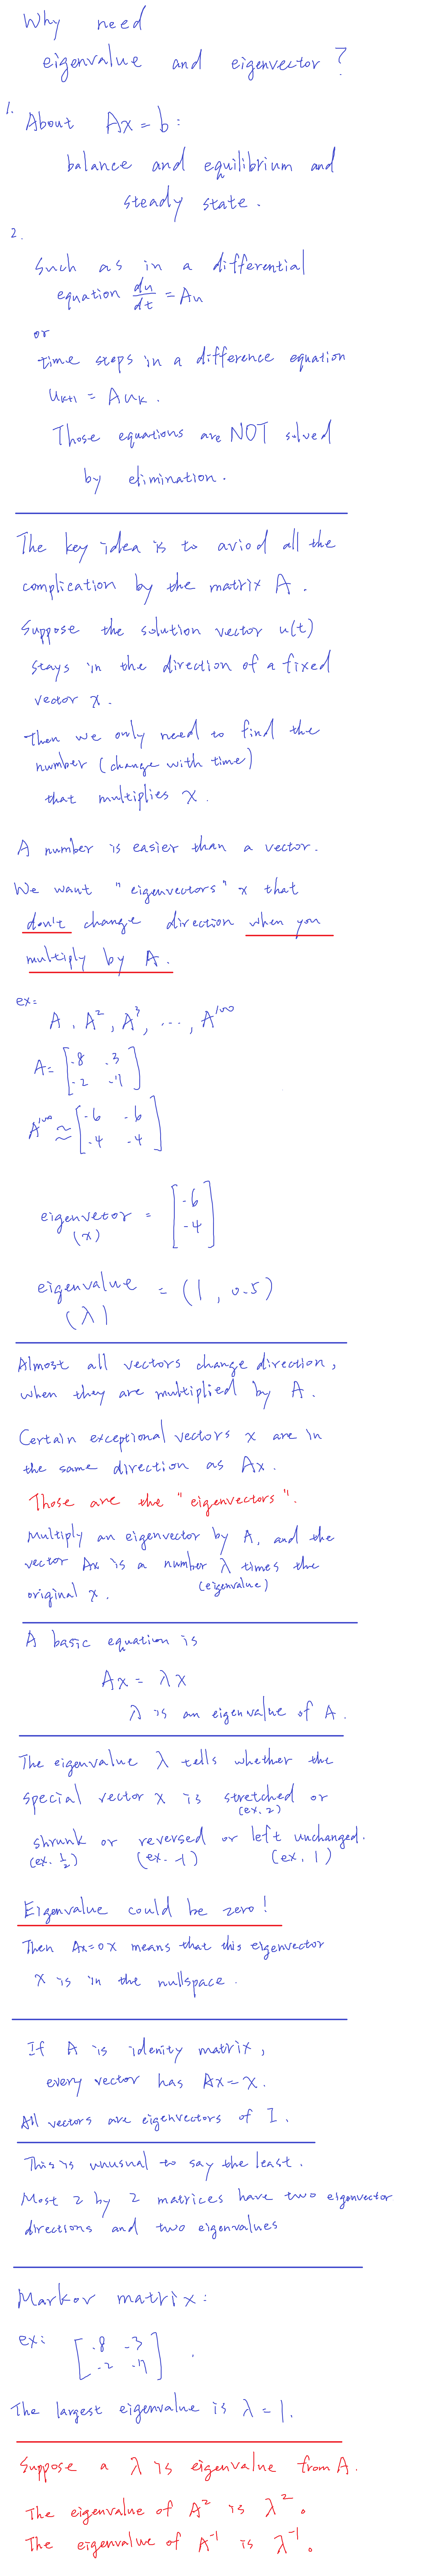 Why need
eigenvalue and eigenvector?
1. About Ax = b:
balance and equilibrium and
steady state.
2.
Such as in a differential
equation du/dt = Au
or
time steps in a difference equation
uk+1 = Auk.
Those equations are NOT solved
by elimination.
The key idea is to aviod all the
complication by the matrix A.
Suppose the solution vector u(t)
stays in the direction of a fixed
vector x.
Then we only need to find the
number (change with time)
that multiplies x.
A number is easier than a vector.
We want "eigenvectors" x that
don't change direction when you
multiply by A.
ex:
A, A², A³, ..., A¹⁰⁰
A = [.8 .3
.2 .7]
A¹⁰⁰ ≈ [.6 .6
.4 .4]
eigenvetor = [.6
(x) .4]
eigenvalue = (1, 0.5)
(λ)
Almost all vectors change direction,
when they are multiplied by A.
Certain exceptional vectors x are in
the same direction as Ax.
Those are the "eigenvectors".
Multiply an eigenvector by A, and the
vector Ax is a number λ times the
original x. (eigenvalue)
A basic equation is
Ax = λx
λ is an eigenvalue of A.
The eigenvalue λ tells whether the
special vector x is stretched or
(ex. 2)
shrunk or reversed or left unchanged.
(ex. ½) (ex. -1) (ex. 1)
Eigenvalue could be zero!
Then Ax=0x means that this eigenvector
x is in the nullspace.
If A is idenity matrix,
every vector has Ax=x.
All vectors are eigenvectors of I.
This is unusual to say the least.
Most 2 by 2 matrices have two eigenvector
directions and two eigenvalues
Markov matrix:
ex: [.8 .3
.2 .7].
The largest eigenvalue is λ = 1.
Suppose a λ is eigenvalue from A.
The eigenvalue of A² is λ².
The eigenvalue of A⁻¹ is λ⁻¹.